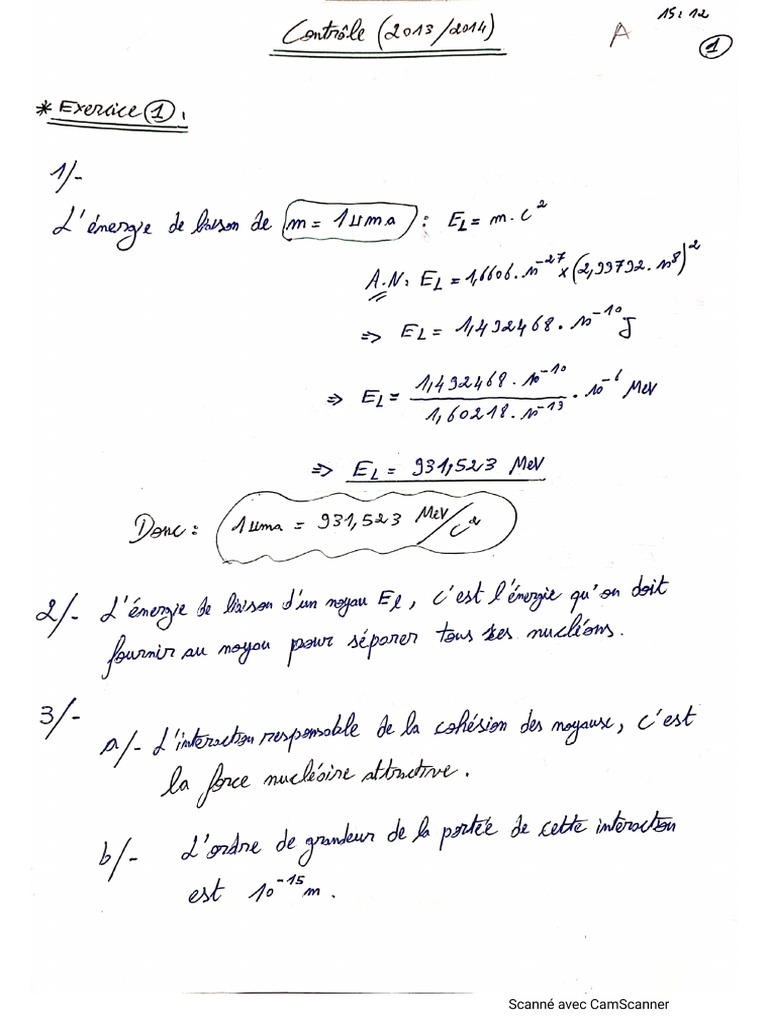 Contrôle (2013/2014)
A
15:12
1
* Exercice 1 :
1/-
L'énergie de liaison de m = 1 uma : E_L = m.c²
A.N: E_L = 1,6606.10⁻²⁷ × (2,99792.10⁸)²
⇒ E_L = 1,492468.10⁻¹⁰ J
⇒ E_L = 1,492468.10⁻¹⁰ / 1,60218.10⁻¹⁹ . 10⁻⁶ MeV
⇒ E_L = 931,523 MeV
Donc : 1 uma = 931,523 MeV/c²
2/- L'énergie de liaison d'un noyau El, c'est l'énergie qu'on doit
fournir au noyau pour séparer tous ses nucléons.
3/-
a/- L'interaction responsable de la cohésion des noyaux, c'est
la force nucléaire attractive.
b/- L'ordre de grandeur de la portée de cette interaction
est 10⁻¹⁵ m.
Scanné avec CamScanner